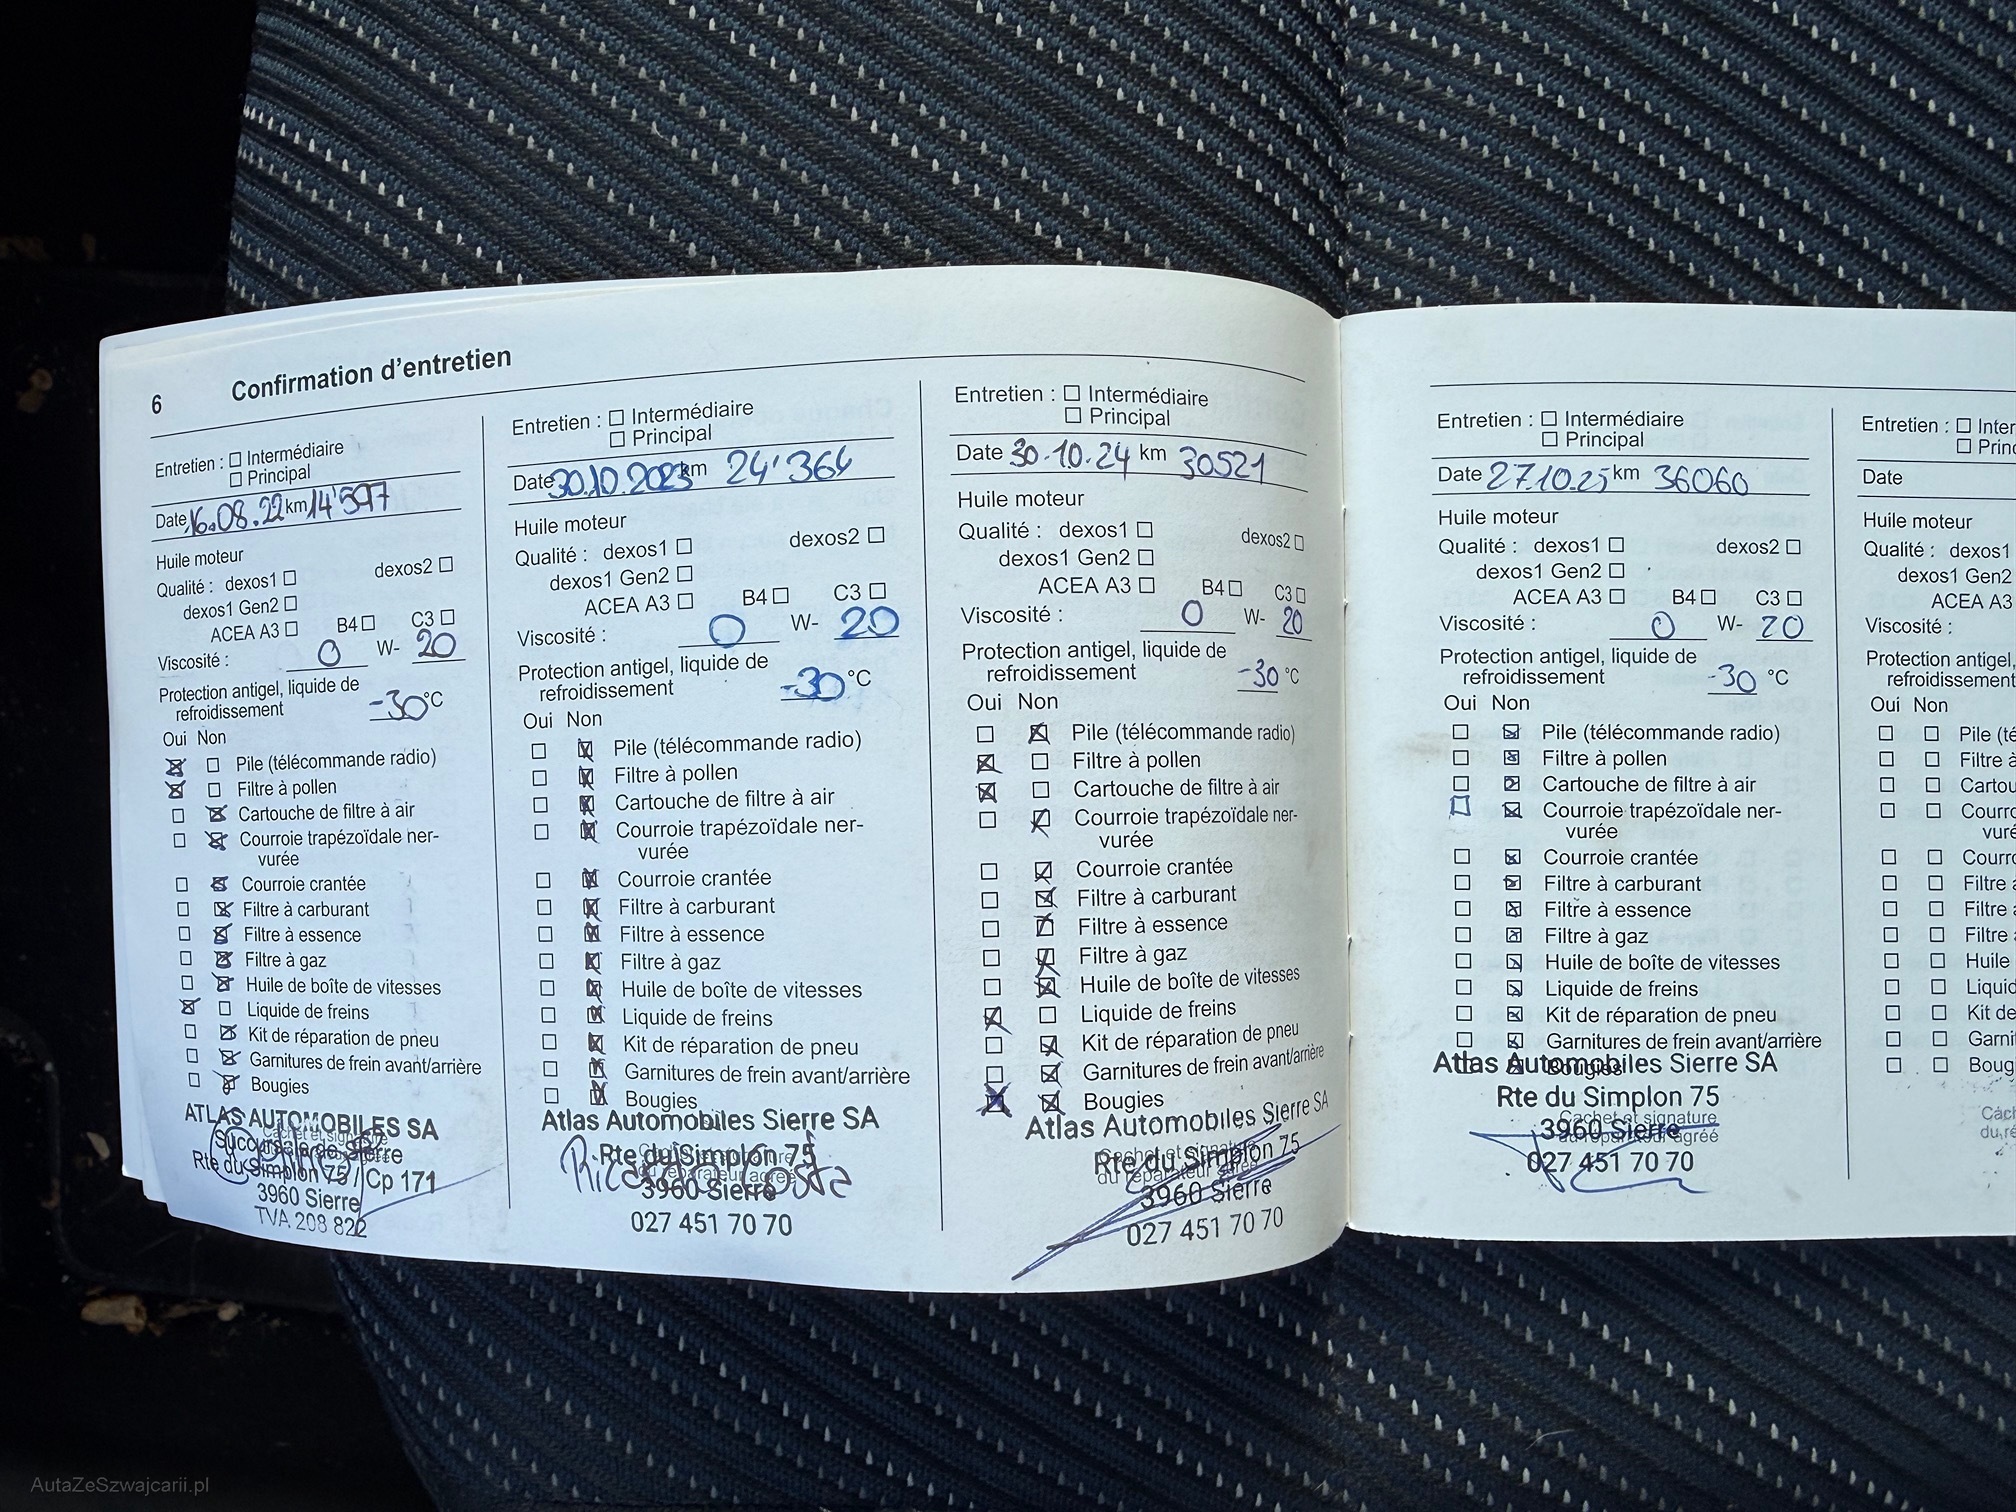 6 Confirmation d'entretien
Entretien : ☐ Intermédiaire
☐ Principal
Date 16.08.22 km 14'597
Huile moteur
Qualité : dexos1 ☐ dexos2 ☐
dexos1 Gen2 ☐
ACEA A3 ☐ B4 ☐ C3 ☐
Viscosité : 0 W- 20
Protection antigel, liquide de
refroidissement -30 °C
Oui Non
☒ ☐ Pile (télécommande radio)
☒ ☐ Filtre à pollen
☐ ☒ Cartouche de filtre à air
☐ ☒ Courroie trapézoïdale ner-
vurée
☐ ☒ Courroie crantée
☐ ☒ Filtre à carburant
☐ ☒ Filtre à essence
☐ ☒ Filtre à gaz
☐ ☒ Huile de boîte de vitesses
☒ ☐ Liquide de freins
☐ ☒ Kit de réparation de pneu
☐ ☒ Garnitures de frein avant/arrière
☐ ☒ Bougies
ATLAS AUTOMOBILES SA
Succursale de Sierre
Rte du Simplon 75 / Cp 171
3960 Sierre
TVA 208 822
Entretien : ☐ Intermédiaire
☐ Principal
Date 30.10.2023 km 24'364
Huile moteur
Qualité : dexos1 ☐ dexos2 ☐
dexos1 Gen2 ☐
ACEA A3 ☐ B4 ☐ C3 ☐
Viscosité : 0 W- 20
Protection antigel, liquide de
refroidissement -30 °C
Oui Non
☐ ☒ Pile (télécommande radio)
☐ ☒ Filtre à pollen
☐ ☒ Cartouche de filtre à air
☐ ☒ Courroie trapézoïdale ner-
vurée
☐ ☒ Courroie crantée
☐ ☒ Filtre à carburant
☐ ☒ Filtre à essence
☐ ☒ Filtre à gaz
☐ ☒ Huile de boîte de vitesses
☐ ☒ Liquide de freins
☐ ☒ Kit de réparation de pneu
☐ ☒ Garnitures de frein avant/arrière
☐ ☒ Bougies
Atlas Automobiles Sierre SA
Rte du Simplon 75
3960 Sierre
027 451 70 70
Entretien : ☐ Intermédiaire
☐ Principal
Date 30.10.24 km 30521
Huile moteur
Qualité : dexos1 ☐ dexos2 ☐
dexos1 Gen2 ☐
ACEA A3 ☐ B4 ☐ C3 ☐
Viscosité : 0 W- 20
Protection antigel, liquide de
refroidissement -30 °C
Oui Non
☐ ☒ Pile (télécommande radio)
☒ ☐ Filtre à pollen
☒ ☐ Cartouche de filtre à air
☐ ☒ Courroie trapézoïdale ner-
vurée
☐ ☒ Courroie crantée
☐ ☒ Filtre à carburant
☐ ☒ Filtre à essence
☐ ☒ Filtre à gaz
☐ ☒ Huile de boîte de vitesses
☒ ☐ Liquide de freins
☐ ☒ Kit de réparation de pneu
☐ ☒ Garnitures de frein avant/arrière
☒ ☒ Bougies
Atlas Automobiles Sierre SA
Cachet et signature
Rte du Simplon 75
du réparateur agréé
3960 Sierre
027 451 70 70
Entretien : ☐ Intermédiaire
☐ Principal
Date 27.10.25 km 36060
Huile moteur
Qualité : dexos1 ☐ dexos2 ☐
dexos1 Gen2 ☐
ACEA A3 ☐ B4 ☐ C3 ☐
Viscosité : 0 W- 20
Protection antigel, liquide de
refroidissement -30 °C
Oui Non
☐ ☒ Pile (télécommande radio)
☐ ☒ Filtre à pollen
☐ ☒ Cartouche de filtre à air
☐ ☒ Courroie trapézoïdale ner-
vurée
☐ ☒ Courroie crantée
☐ ☒ Filtre à carburant
☐ ☒ Filtre à essence
☐ ☒ Filtre à gaz
☐ ☒ Huile de boîte de vitesses
☐ ☒ Liquide de freins
☐ ☒ Kit de réparation de pneu
☐ ☒ Garnitures de frein avant/arrière
☐ ☒ Bougies
Atlas Automobiles Sierre SA
Rte du Simplon 75
Cachet et signature
3960 Sierre
du réparateur agréé
027 451 70 70
Entretien : ☐ Inter
☐ Princ
Date
Huile moteur
Qualité : dexos1
dexos1 Gen2
ACEA A3
Viscosité :
Protection antigel,
refroidissement
Oui Non
☐ ☐ Pile (té
☐ ☐ Filtre à
☐ ☐ Cartou
☐ ☐ Courro
vuré
☐ ☐ Courro
☐ ☐ Filtre à
☐ ☐ Filtre à
☐ ☐ Filtre à
☐ ☐ Huile
☐ ☐ Liquid
☐ ☐ Kit de
☐ ☐ Garni
☐ ☐ Boug
Cach
du ré
AutaZeSzwajcarii.pl